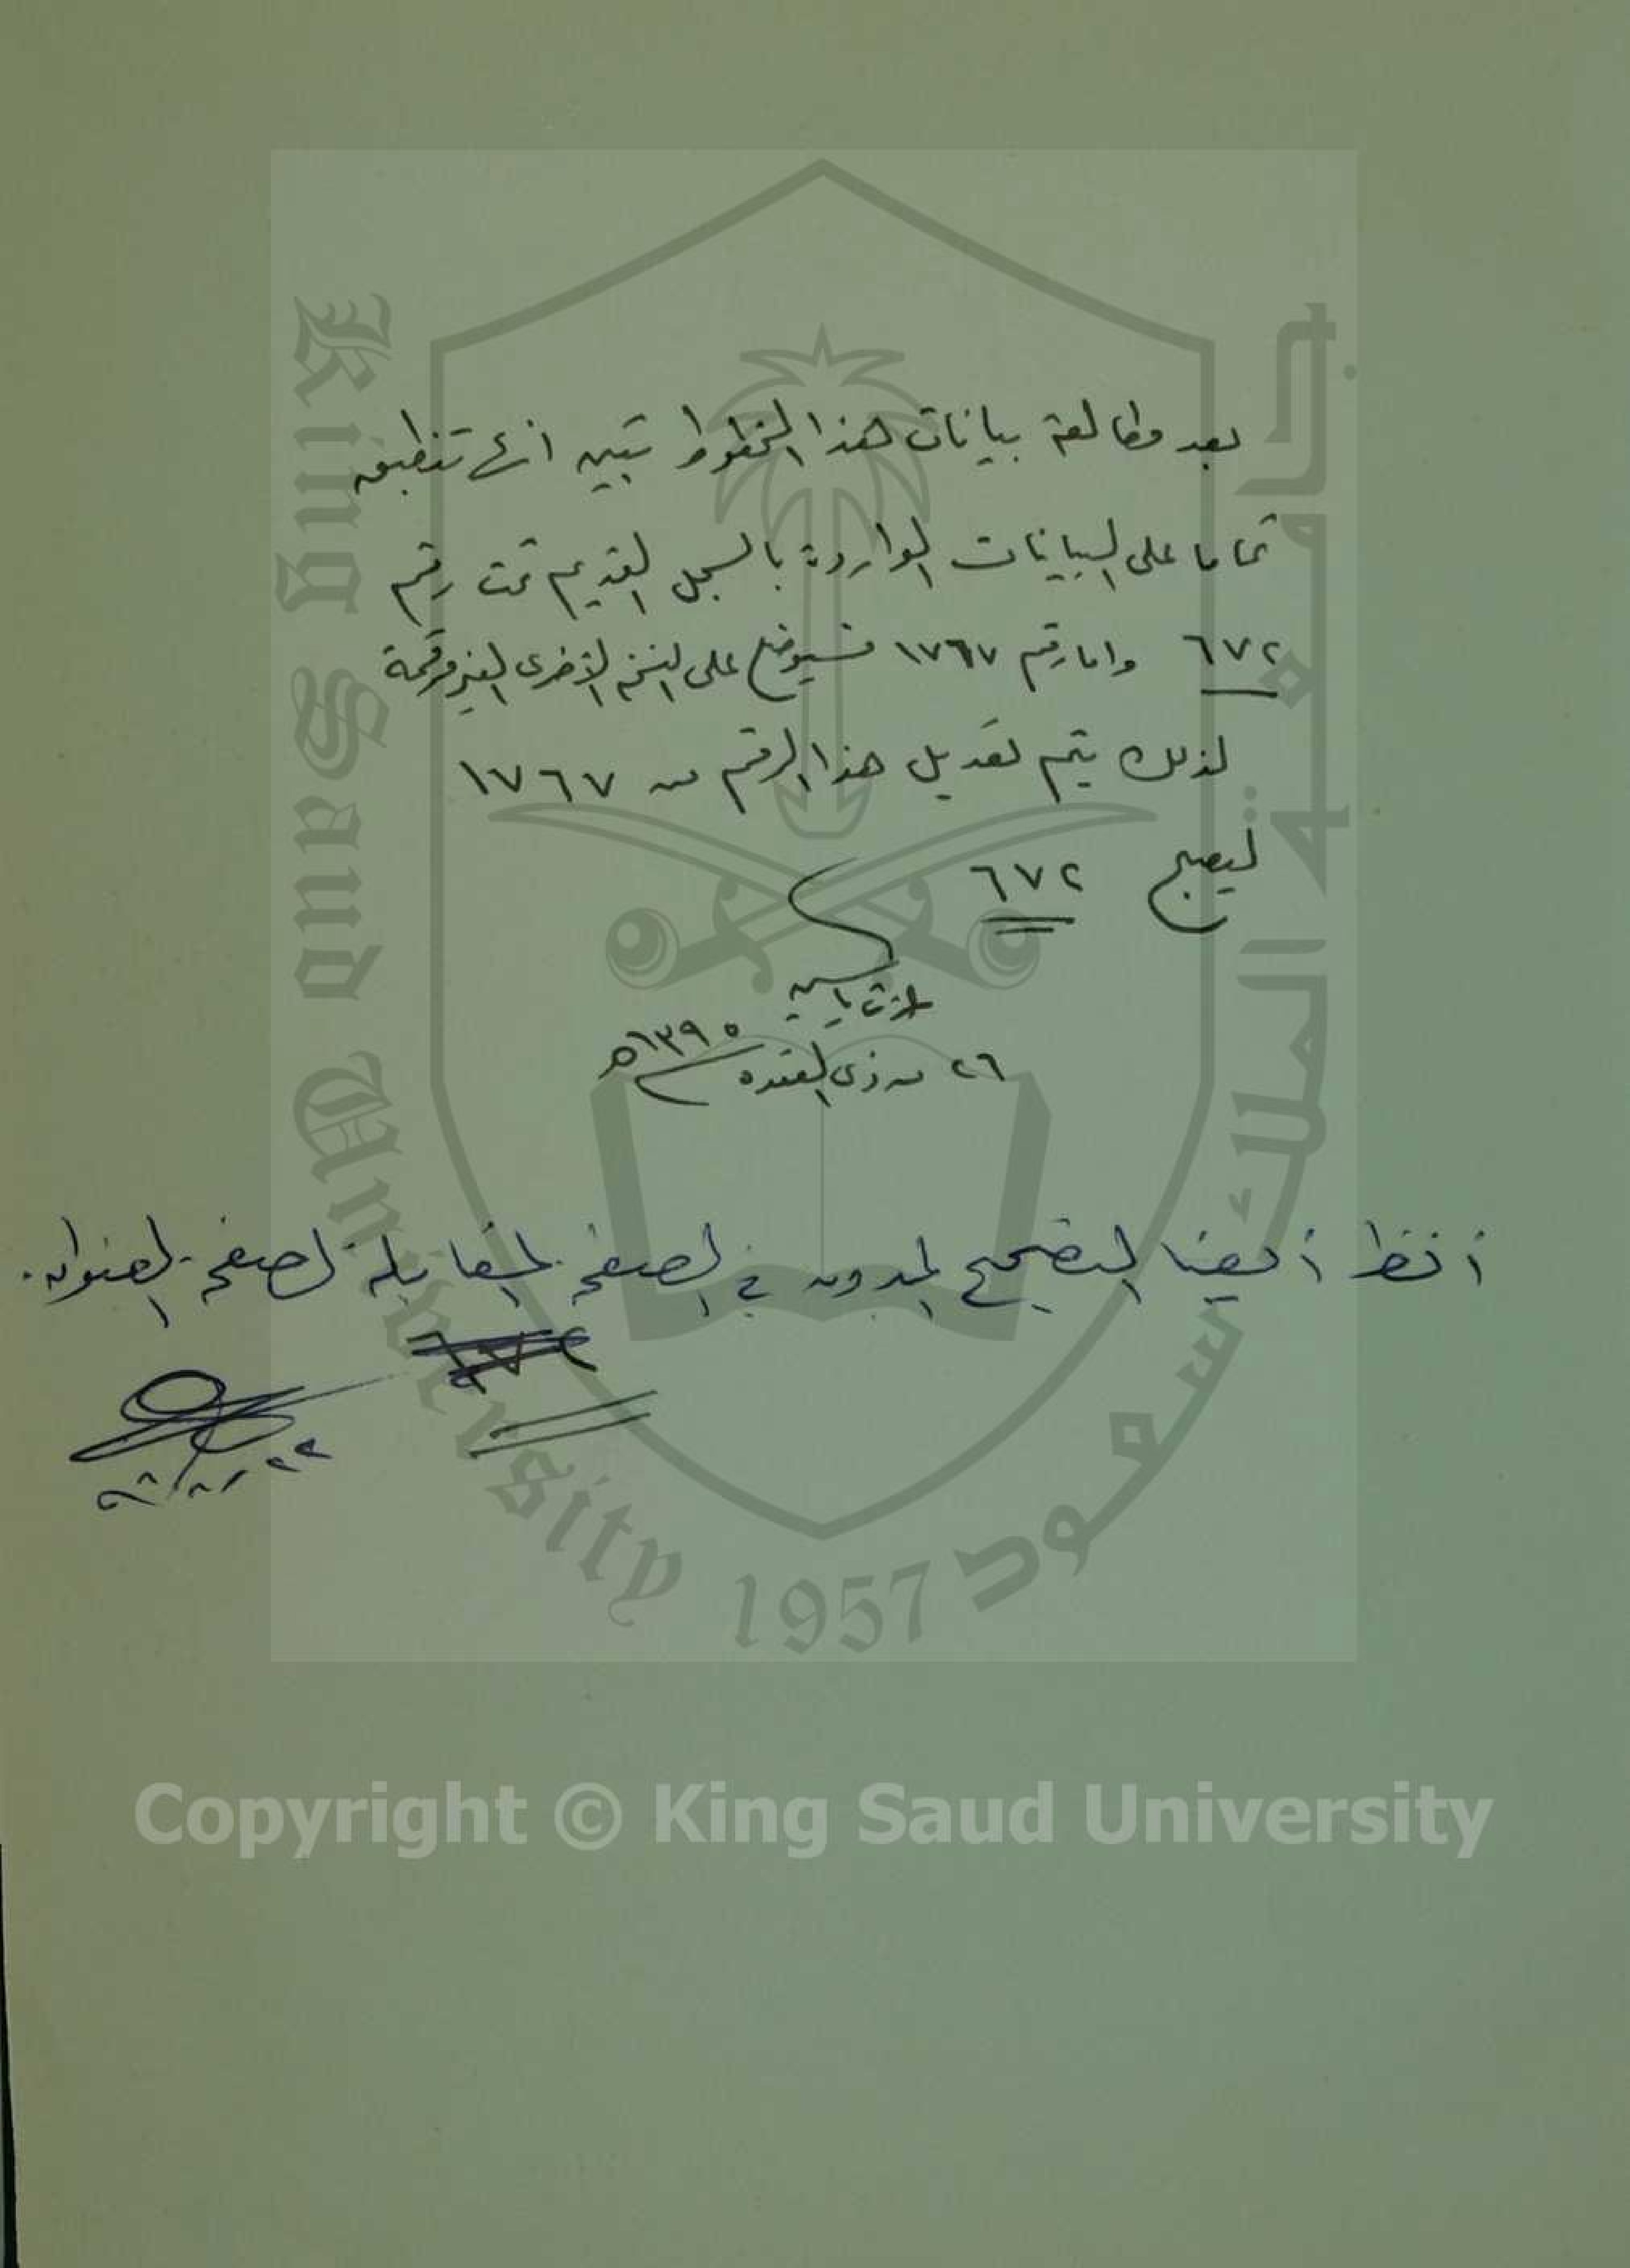 بعد مطالعة بيانات هذا المخطوط تبين انها تنطبق
تماما على البيانات الواردة بالسجل القديم تحت رقم
٦٧٢ واما رقم ١٧٦٧ فسيوضع على النسخ الأخرى الغير مرقمة
لذلك يتم تعديل هذا الرقم من ١٧٦٧
ليصبح ٦٧٢
ياسين
٢٦ من ذى القعدة ١٣٩٥هـ
أنظر أيضا التصحيح المدون في الصفحة المقابلة لصفحة العنوان.
٦٧٢
King Saud University 1957
جامعة الملك سعود
Copyright © King Saud University